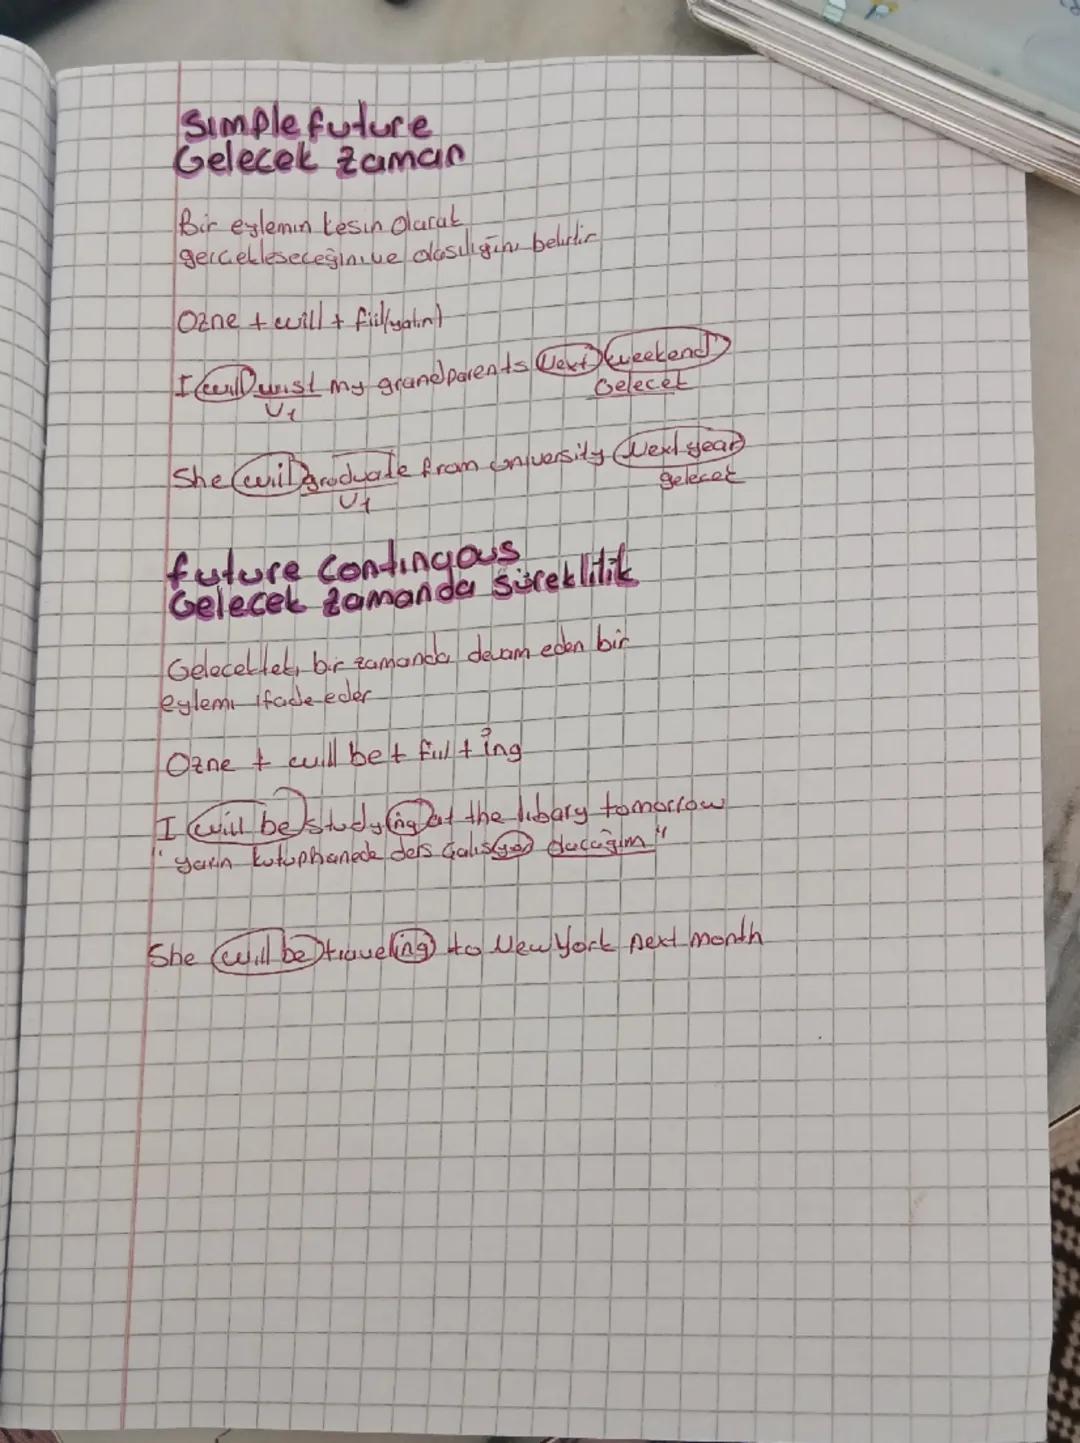 Simple future
Gelecek zaman
Bir eylemin kesin olarak
gercekleseceğini ve olasılığını belirtir
Ozne + will + fiil(yalın)
I will visit my grandparents Next weekend
V1 Gelecek
She will graduate from university Next year
V1 gelecek
future continuous
Gelecek zamanda süreklilik
Gelecekteki bir zamanda devam eden bir
eylemi ifade eder
Ozne + will be + fiil + ing
I will be studying at the libary tomorrow
"yarın kutuphanede ders çalışıyor olacağım"
She will be traveling to New York next month